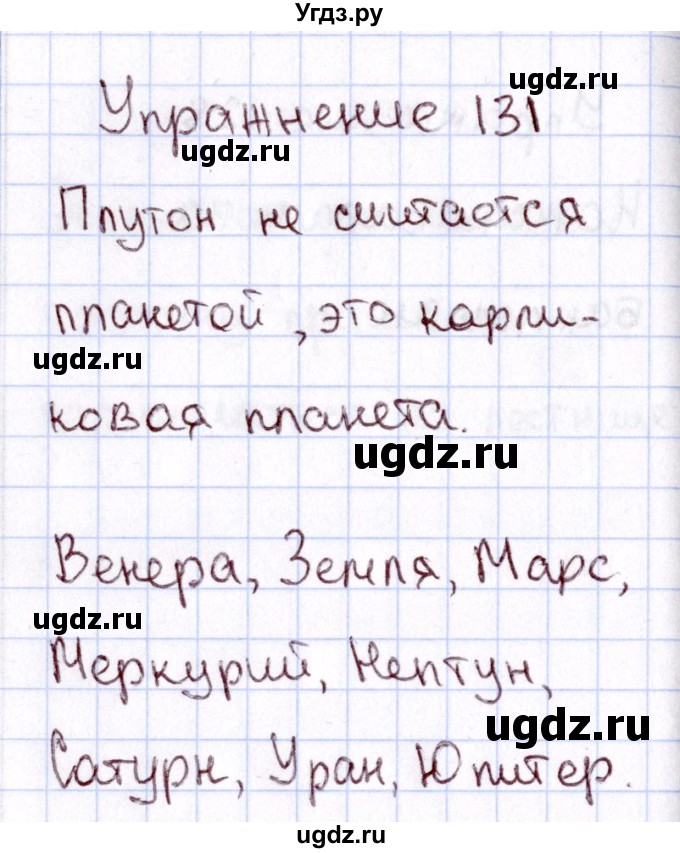 Угдз.ру
ugdz.ru
Упражнение 131
ugdz.ru
Плутон не считается
планетой, это карли-
ugdz.ru
ковая планета.
ugdz.ru
Венера, Земля, Марс,
ugdz.ru
Меркурий, Нептун,
ugdz.ru
Сатурн, Уран, Юпитер.
ugdz.ru